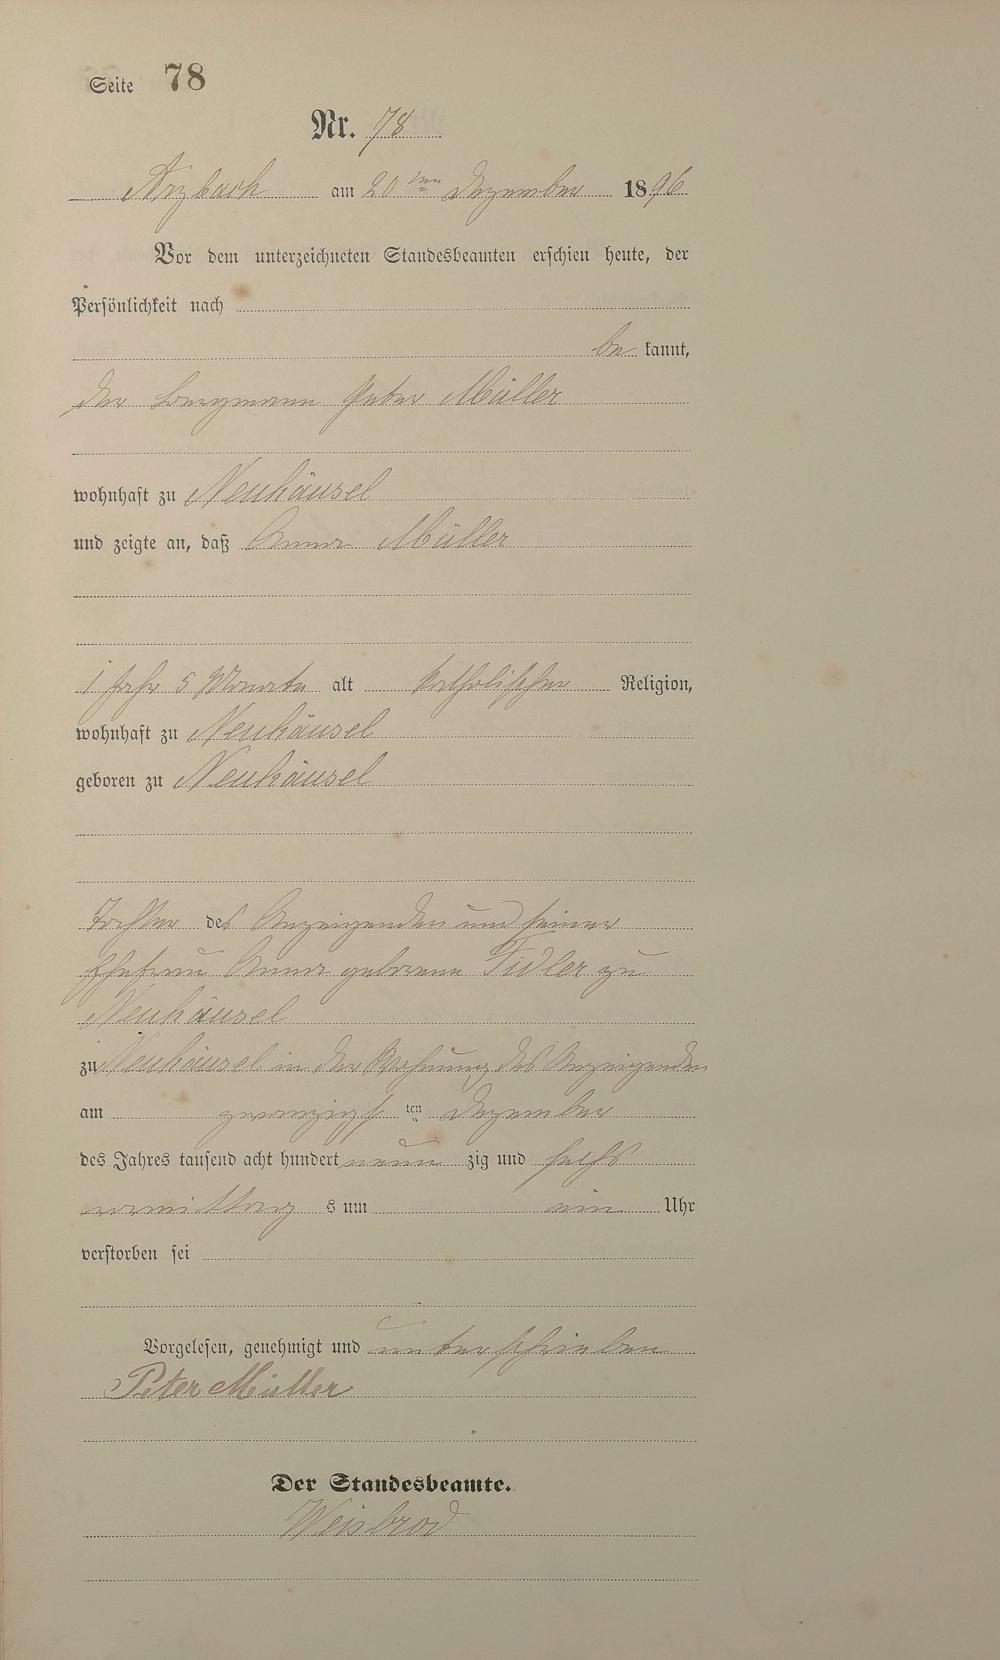 Seite 78
Nr. 78
Arzbach am 20ten Dezember 1896
Vor dem unterzeichneten Standesbeamten erschien heute, der
Persönlichkeit nach
be kannt,
der Bergmann Peter Müller
wohnhaft zu Neuhäusel
und zeigte an, daß Anna Müller
1 Jahr 5 Monate alt katholischer Religion,
wohnhaft zu Neuhäusel
geboren zu Neuhäusel
Tochter des Anzeigenden und seiner
Ehefrau Anna geborene Fidler zu
Neuhäusel
zu Neuhäusel in der Wohnung des Anzeigenden
am zwanzigsten Dezember
des Jahres tausend acht hundert neun zig und sechs
vormittag s um ein Uhr
verstorben sei
Vorgelesen, genehmigt und unterschrieben
Peter Müller
Der Standesbeamte.
Weisbrod